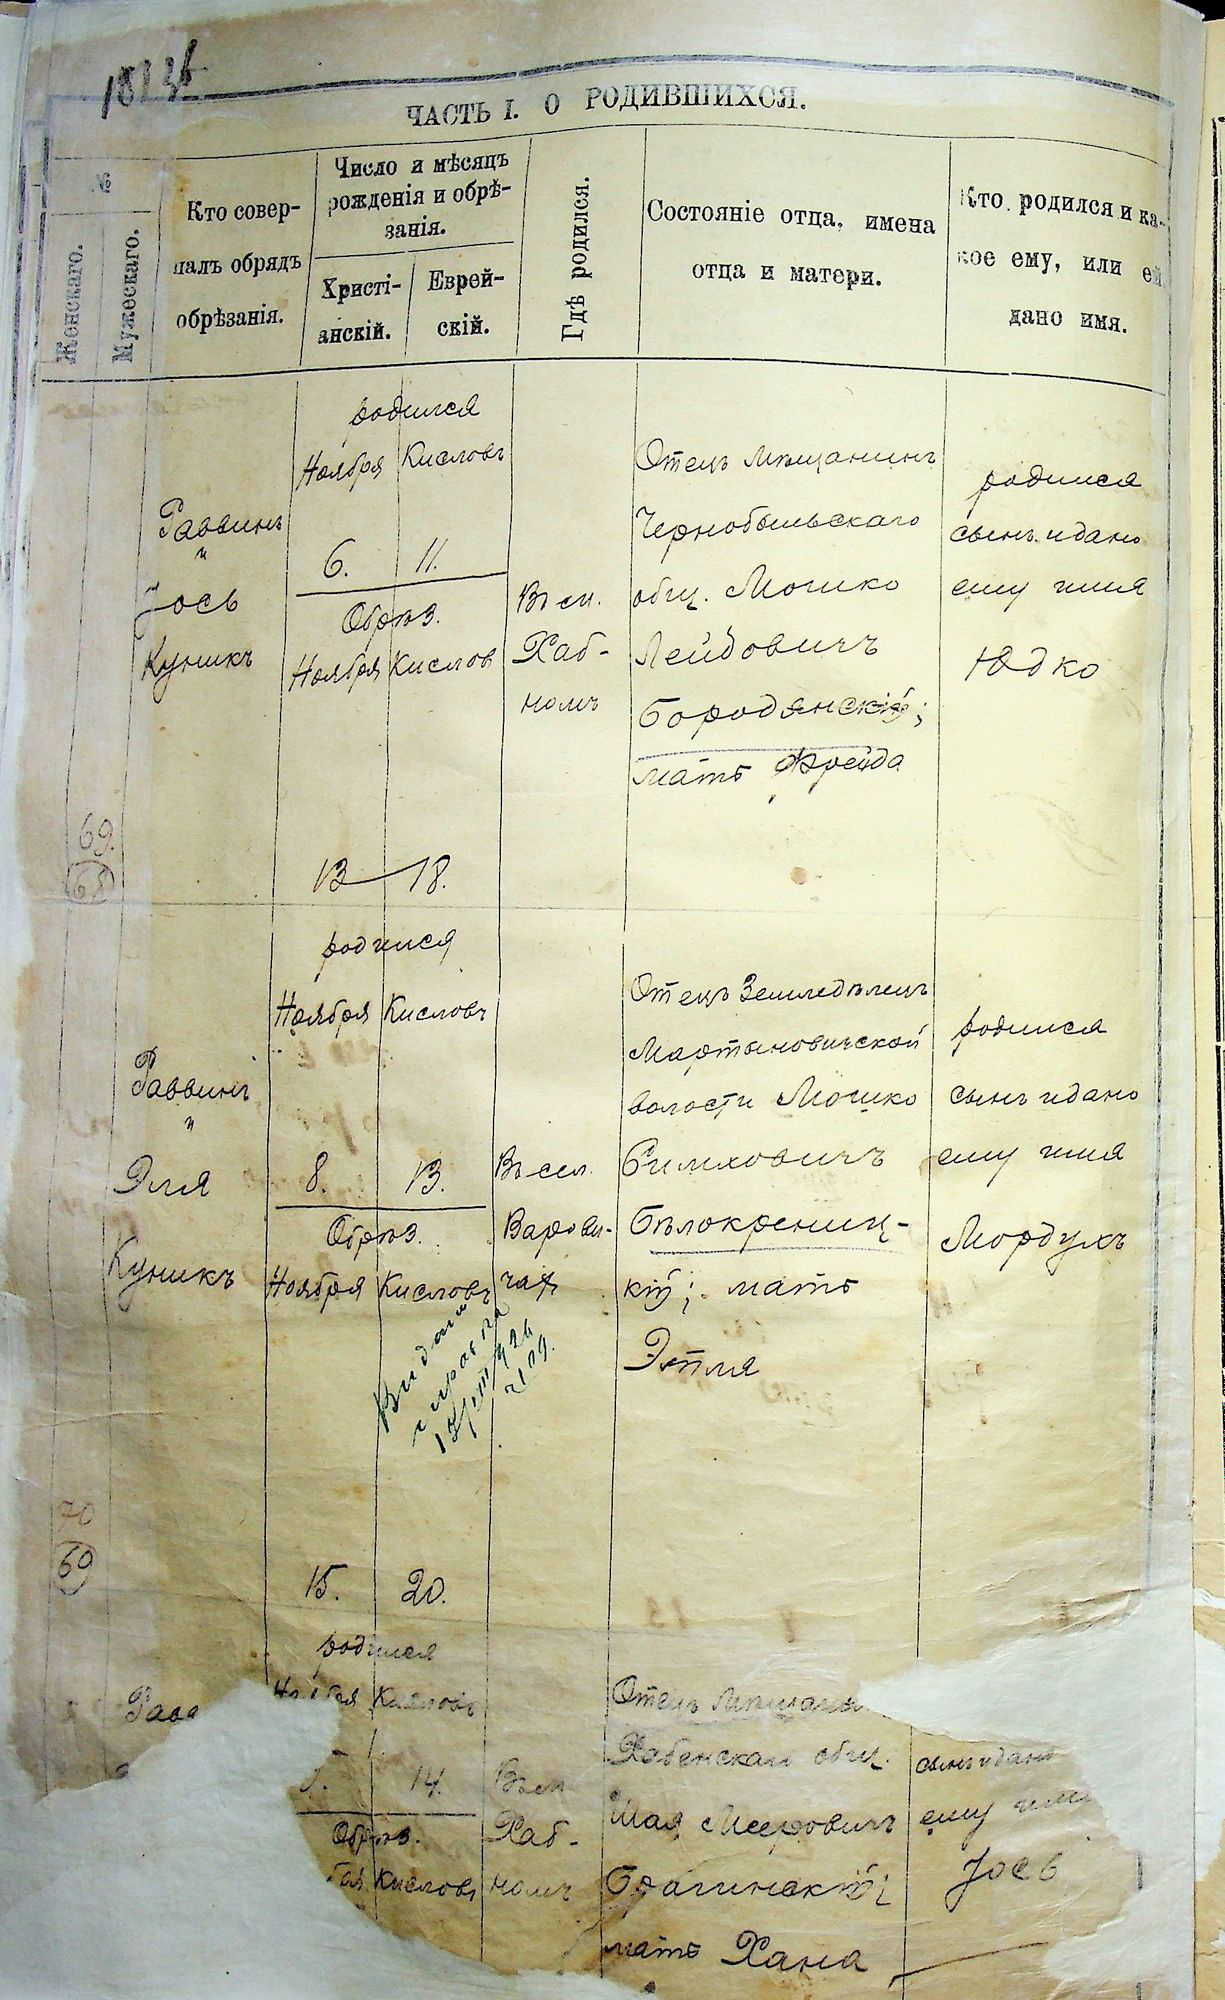 ЧАСТЬ I. О РОДИВШИХСЯ.
№
Женскаго.
Мужескаго.
Кто совер-
шалъ обрядъ
обрѣзанія.
Число и мѣсяцъ
рожденія и обрѣ-
занія.
Христі-
анскій.
Еврей-
скій.
Гдѣ родился.
Состояніе отца, имена
отца и матери.
Кто родился и ка-
кое ему, или ей
дано имя.
69.
68
Раввинъ
и
Іось
Куникъ
родился
Ноября Кисловъ
6. 11.
Обрѣз.
Ноября Кислов
13 18.
Въ м.
Хаб-
номъ
Отецъ мѣщанинъ
Чернобыльскаго
общ. Мошко
Лейбовичъ
Бородянскій;
мать Фрейда
родился
сынъ и дано
ему имя
Юдко
70
69
Раввинъ
и
Эля
Куникъ
родился
Ноября Кисловъ
8. 13.
Обрѣз.
Ноября Кисловъ
15. 20.
Въ сел.
Варови-
чах
Отецъ Земледѣлецъ
Мартыновичской
волости Мошко
Симховичъ
Бѣлокриниц-
кій; мать
Этля
родился
сынъ и дано
ему имя
Мордухъ
родился
Кисловъ
14.
Обрѣз.
Кисловъ
Въ м.
Хаб-
номъ
Отецъ мѣщанин
Хабенскаго общ.
Мееровичъ
Брагинскій;
мать Хана
сынъ и дано
ему имя
Іось